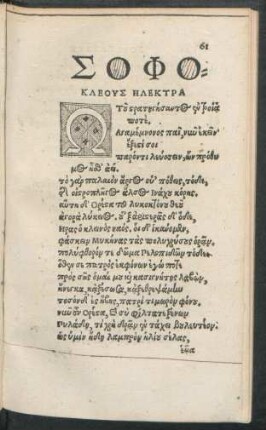 61
ΣΟΦΟ-
ΚΛΕΟΥΣ ΗΛΕΚΤΡΑ
Ω Τοῦ στρατηγήσαντος ἐν Τροίᾳ
ποτὲ,
Αγαμέμνονος παῖ, νῦν ἐκεῖν᾽
ἔξεστί σοι
παρόντι λεύσσειν, ὧν πρόθυ
μος ἦσθ᾽ ἀεί.
τὸ γὰρ παλαιὸν ἄργος οὑ᾽ πόθεις, τόδε,
τῆς οἰστροπλῆγος ἄλσος Ἰνάχου κόρης.
αὕτη δ᾽ Ορέστα τοῦ λυκοκτόνου θεοῦ
ἀγορὰ λύκειος. οὑξ ἀριστερᾶς δ᾽ ὅδε,
ἥρας ὁ κλεινὸς ναός. οἷ δ᾽ ἱκάνομεν,
φάσκειν Μυκήνας τὰς πολυχρύσους ὁρᾶν.
πολύφθορόν τε δῶμα Πελοπιδῶν τόδε.
ὅθεν σε πατρὸς ἐκ φόνων ἐγώ ποτε
πρὸς σῆς ὁμαίμου καὶ κασιγνήτης λαβών,
ἤνεγκα, κἀξέσωσα, κἀξεθρεψάμην
τοσόνδ᾽ ἐς ἥβης, πατρὶ τιμωρὸν φόνου,
νῦν οὖν Ορέστα, καὶ σὺ φίλτατε ξένων
πυλάδη, τί χρὴ δρᾶν ἐν τάχει βουλευτέον.
ὡς ἡμὶν ἤδη λαμπρὸν ἡλίου σέλας,
ἑῷα